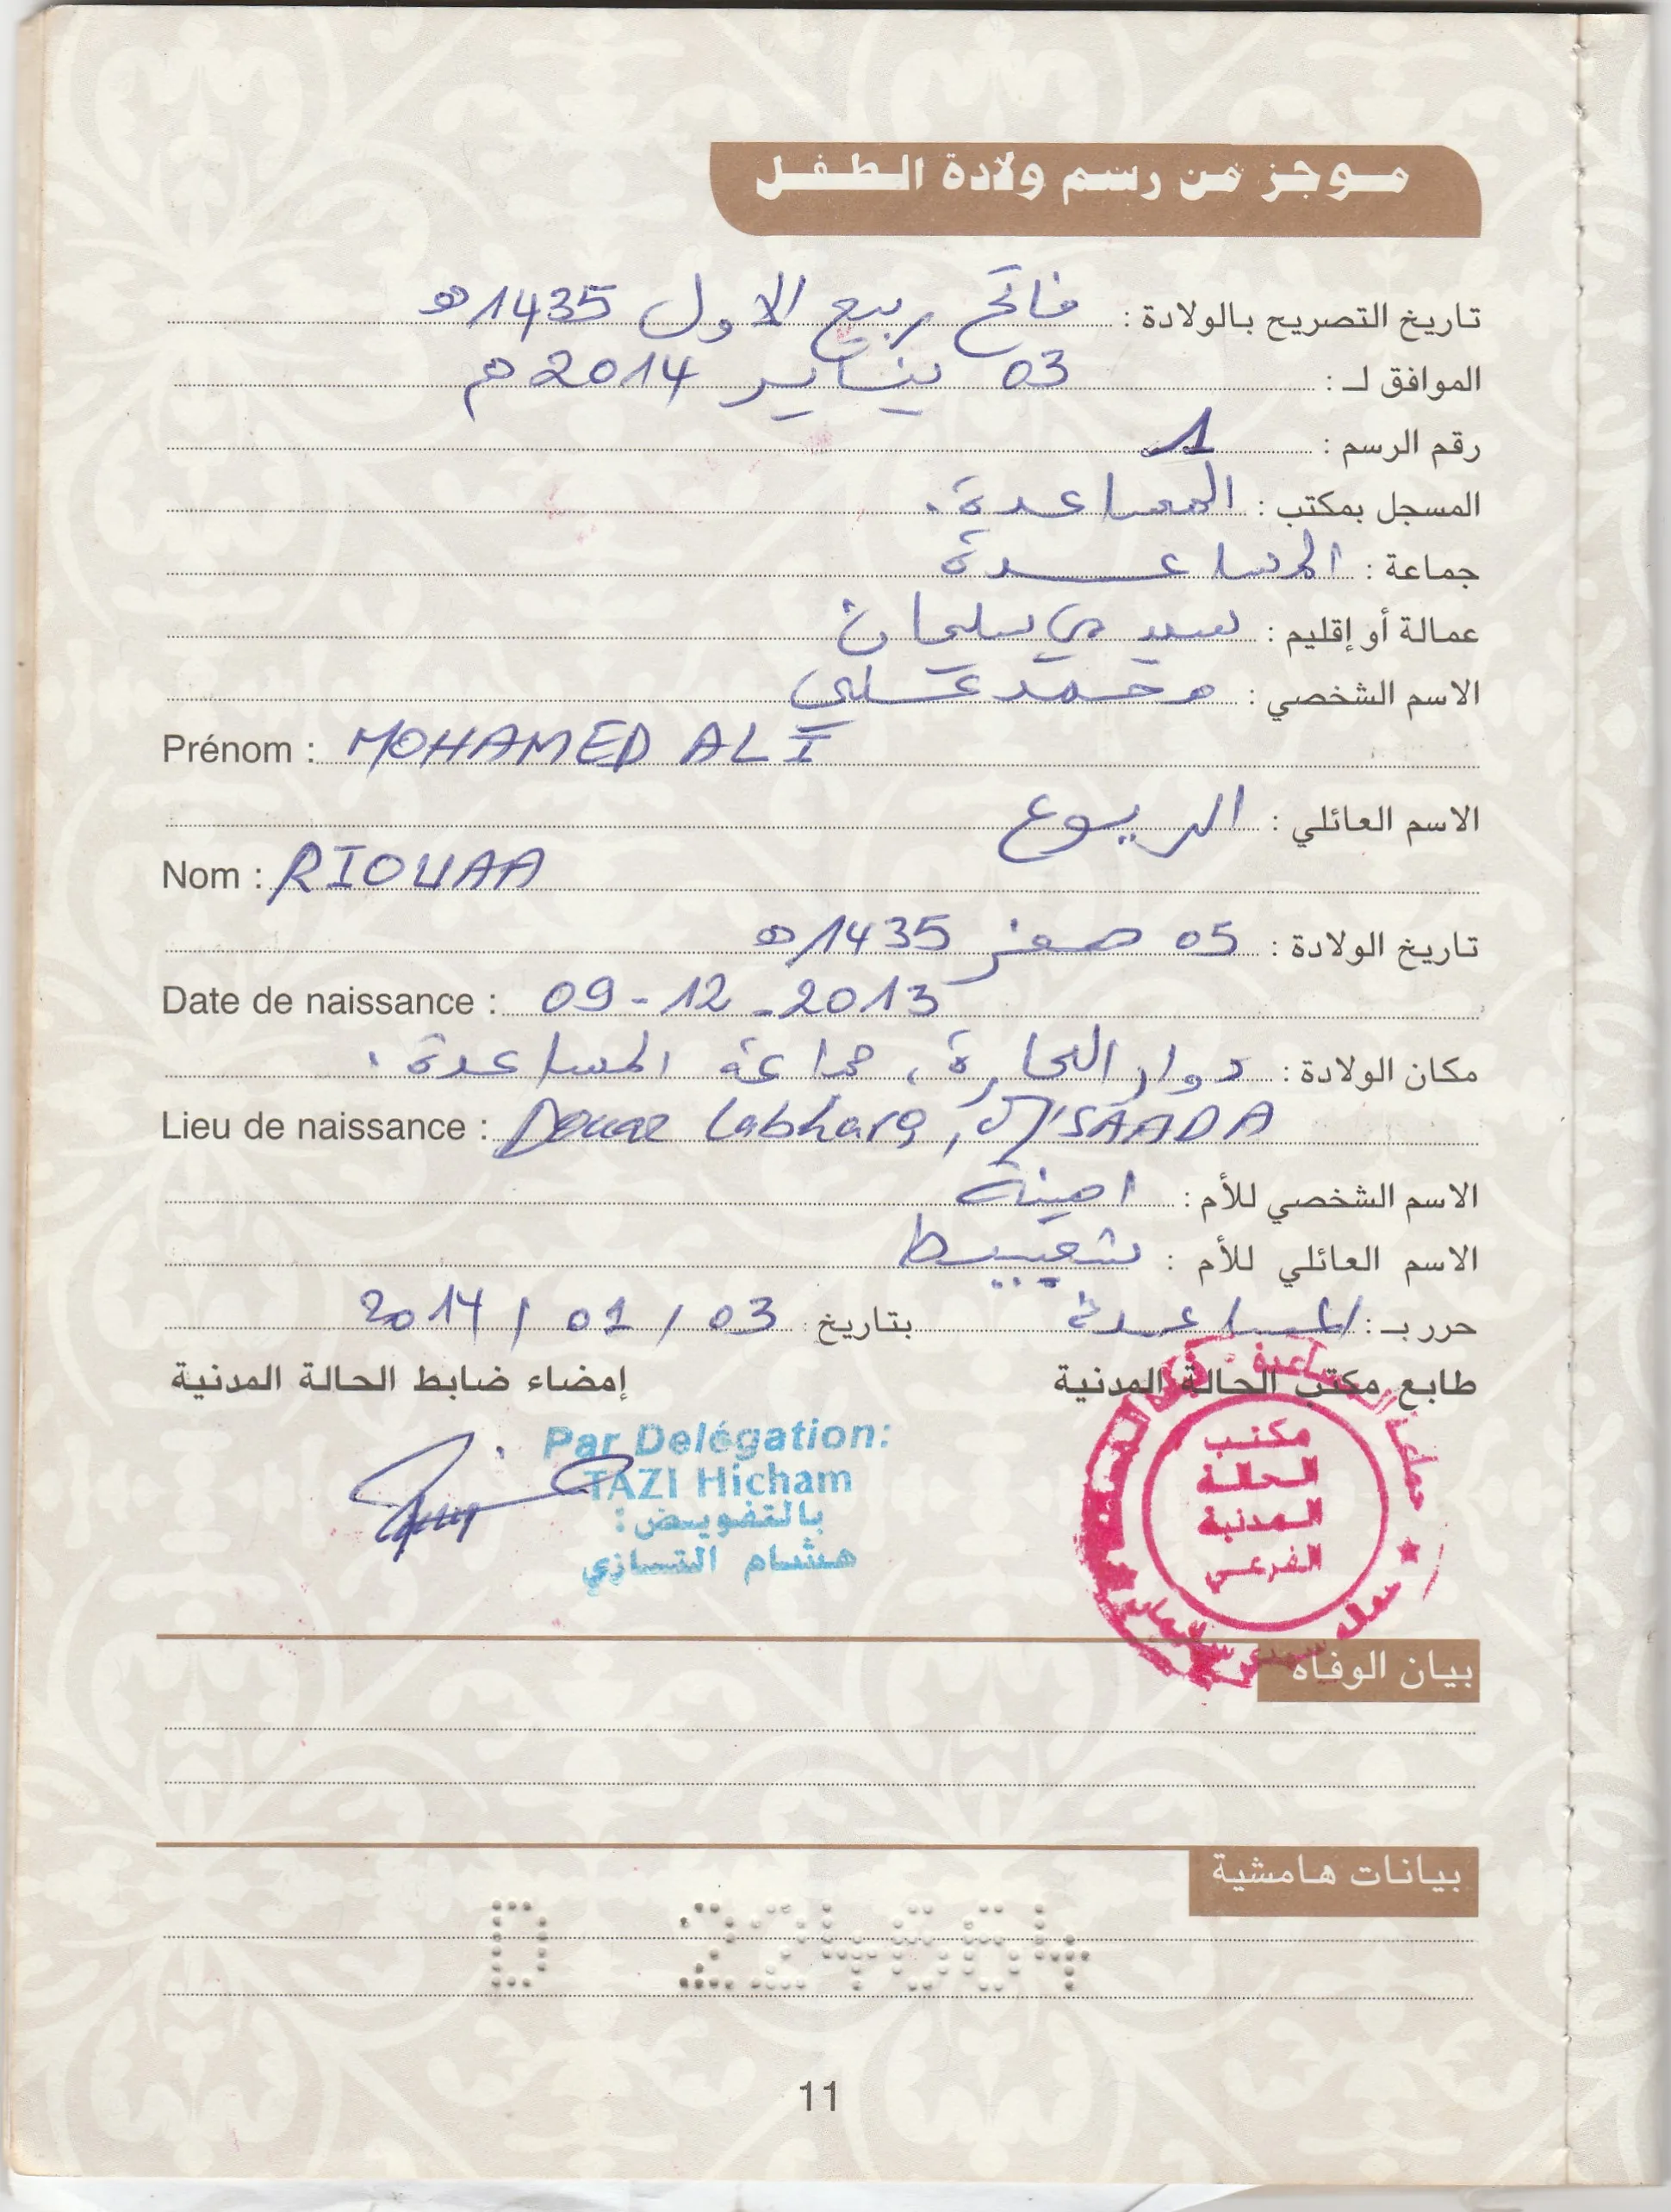 موجز من رسم ولادة الطفل
تاريخ التصريح بالولادة : فاتح ربيع الاول 1435 ه
الموافق لـ : 03 يناير 2014 م
رقم الرسم : 1
المسجل بمكتب : المساعدة.
جماعة : المساعدة
عمالة أو إقليم : سيدي سليمان
الاسم الشخصي : محمد علي
Prénom : MOHAMED ALI
الاسم العائلي : الريوع
Nom : RIOUAA
تاريخ الولادة : 05 صفر 1435 ه
Date de naissance : 09-12-2013
مكان الولادة : دوار البحارة، جماعة المساعدة.
Lieu de naissance : Douar Labhara, M'SAADA
الاسم الشخصي للأم : امينة
الاسم العائلي للأم : شعيبيط
حرر بـ : المساعدة بتاريخ : 03 / 01 / 2014
طابع مكتب الحالة المدنية إمضاء ضابط الحالة المدنية
Par Delégation:
TAZI Hicham
بالتفويض :
هشام التازي
مكتب
الحالة
المدنية
الفرعي
بيان الوفاة
بيانات هامشية
11